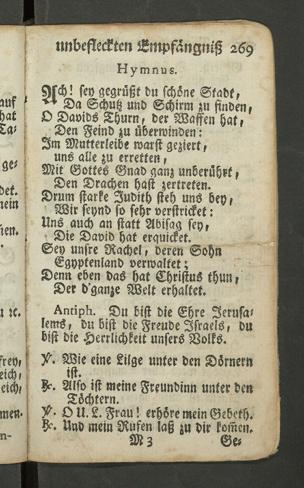 unbefleckten Empfängniß 269
Hymnus.
Ach! sey gegrüßt du schöne Stadt,
Da Schutz und Schirm zu finden,
O Davids Thurn, der Waffen hat,
Den Feind zu überwinden:
Im Mutterleibe warst geziert,
uns alle zu erretten,
Mit Gottes Gnad ganz unberührt,
Den Drachen hast zertreten.
Drum starke Judith steh uns bey,
Wir seynd so sehr verstricket:
Uns auch an statt Abisag sey,
Die David hat erquicket.
Sey unsre Rachel, deren Sohn
Egyptenland verwaltet;
Denn eben das hat Christus thun,
Der d'ganze Welt erhaltet.
Antiph. Du bist die Ehre Jerusa-
lems, du bist die Freude Israels, du
bist die Herrlichkeit unsers Volks.
℣. Wie eine Lilge unter den Dörnern
ist.
℟. Also ist meine Freundinn unter den
Töchtern.
℣. O U. L. Frau! erhöre mein Gebeth.
℟. Und mein Rufen laß zu dir kom̃en.
M 3 Ge-
auf
hat
Ta-
ge-
det.
mein
hen.
u ꝛc.
frey,
eich,
eich,
men.
n-